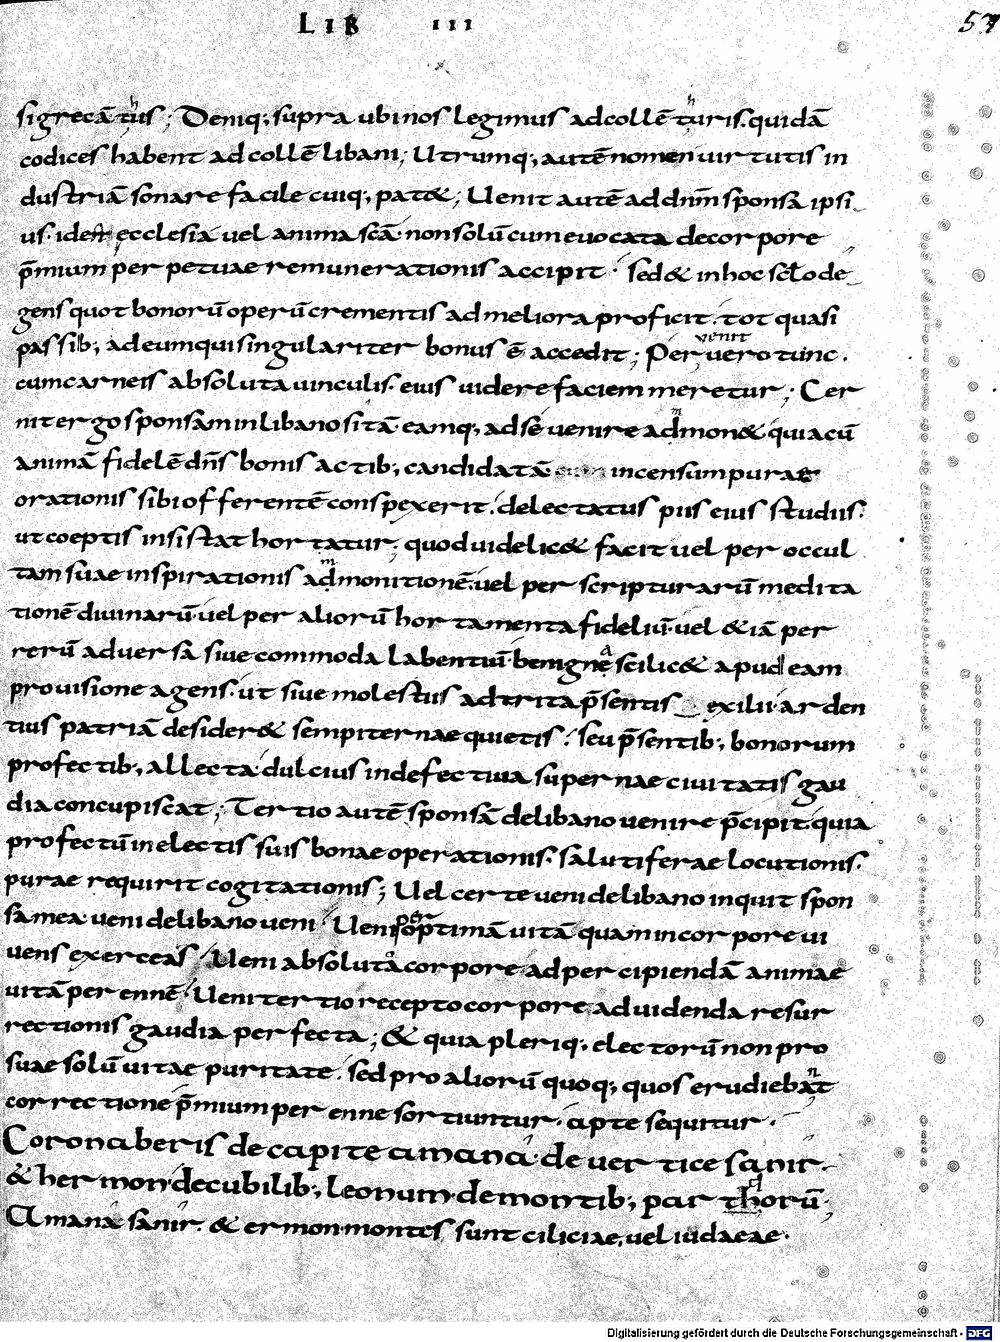 LIB III
57
sigrecā tus; Deniq; supra ubi nos legimus ad collē turis. quidā
codices habent ad collē libani; Utrumq; autē nomen uirtutis in
dustriā sonare facile cuiq; pat&; Uenit autē ad dnm sponsa ipsi
us. idem ecclesia uel anima scā. non solū cum euocata de corpore
p̄mium perpetuae remunerationis accipit. sed & in hoc sclo de
gens quot bonorū operū crementis ad meliora proficit. tot quasi
passib; ad eum qui singulariter bonus ē accedit; Peruenit uero tunc.
cum carneis absoluta uinculis. eius uidere faciem meretur; Cer
nit ergo sponsam in libano sitā eamq; ad se uenire admon& quia cū
animā fidelē dn̄s bonis actib; candidatā incensum purae
orationis sibi offerentē conspexerit. delectatus piis eius studiis.
ut coeptis insistat hortatur; quod uidelic& facit uel per occul
tam suae inspirationis admonitionē. uel per scripturarū medita
tionē diuinarū. uel per aliorū hortamenta fideliū. uel &iā per
rerū aduersa siue commoda labentiū. benigna scilic& apud eam
prouisione agens. ut siue molestiis adtrita p̄sentis exilii. arden
tius patriā desider& sempiternae quietis. seu p̄sentib; bonorum
profectib; allecta dulcius indefectiua supernae ciuitatis gau
dia concupiscat; Tertio autē sponsā de libano uenire p̄cipit. quia
profectū in electis suis bonae operationis. salutiferae locutionis.
purae requirit cogitationis; Uel certe ueni de libano inquit spon
sa mea. ueni de libano ueni. Ueni per optimā uitā quam in corpore ui
uens exerceas. Ueni absoluta corpore ad percipiendā animae
uitā perennē. Ueni tertio recepto corpore ad uidenda resur
rectionis gaudia perfecta; & quia pleriq; electorū non pro
suae solū uitae puritate. sed pro aliorū quoq; quos erudiebant
correctione p̄mium perenne sortiuntur. apte sequitur.
Coronaberis de capite amana. de uertice sanir.
& hermon. de cubilib; leonum. de montib; parthorū;
Amana sanir. & ermon montes sunt ciliciae, uel iudaeae.
Digitalisierung gefördert durch die Deutsche Forschungsgemeinschaft - DFG